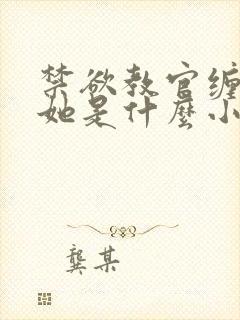 禁欲教官缠
她是什麼小
龔某